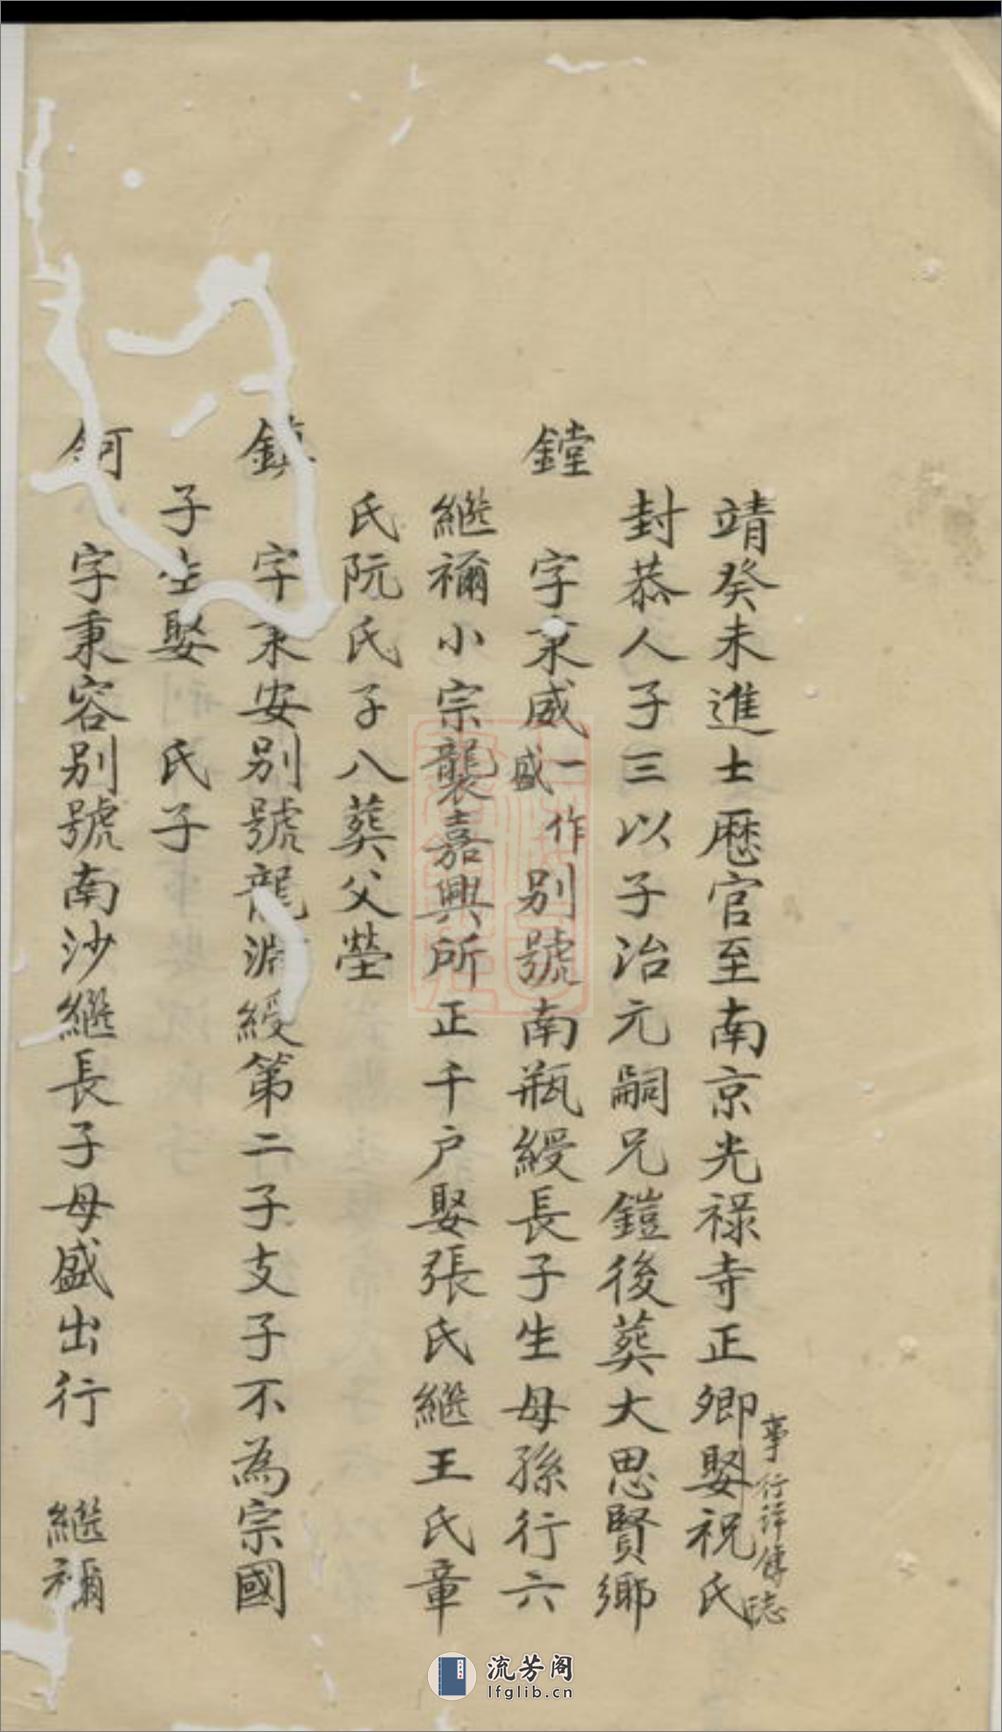 靖癸未進士歷官至南京光祿寺正卿娶祝氏
事行詳傳誌
封恭人子三以子治元嗣兄鎧後葬大思賢鄉
鏜 字秉威一作盛別號南瓶綬長子生母孫行六
繼禰小宗襲嘉興所正千户娶張氏繼王氏章
氏阮氏子八葬父塋
鎮 字秉安別號龍淵綬第二子支子不為宗國
子生娶 氏子
鈳 字秉容別號南沙繼長子母盛出行 繼禰
流芳阁
lfglib.cn